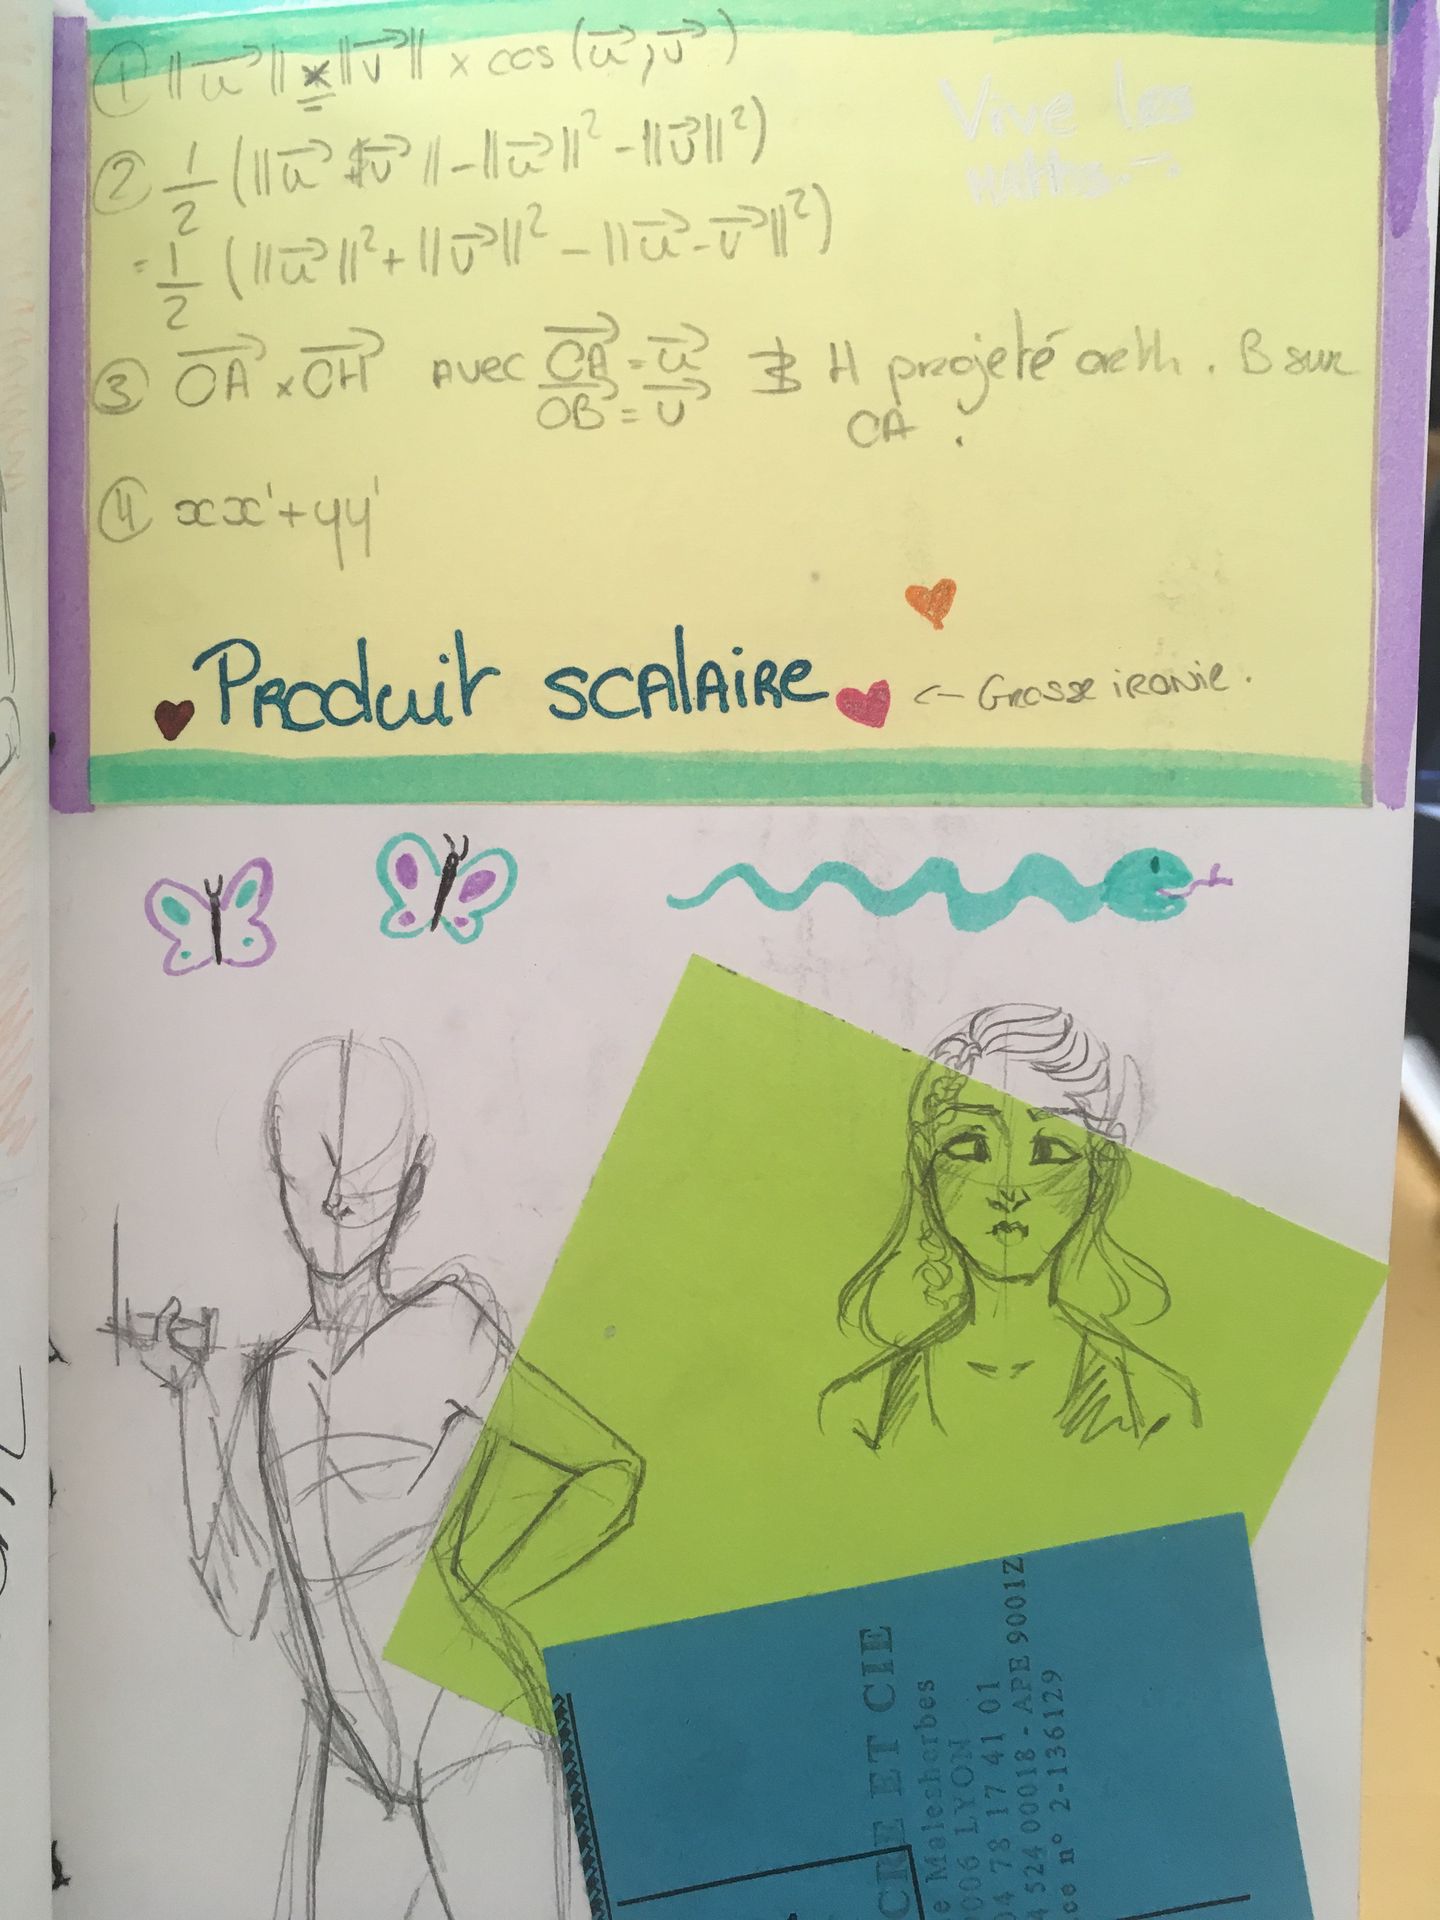 ① ||u⃗|| × ||v⃗|| × cos (u⃗, v⃗)
Vive les
Maths.
② 1/2 (||u⃗ + v⃗|| - ||u⃗||² - ||v⃗||²)
= 1/2 (||u⃗||² + ||v⃗||² - ||u⃗ - v⃗||²)
③ OA⃗ × OH⃗ avec OA⃗ = u⃗ H projeté orth. B sur
OB⃗ = v⃗ OA.
④ xx' + yy'
Produit scalaire <- Grosse ironie.
CRE ET CIE
e Malesherbes
006 LYON
04 78 17 41 01
4 524 00018 - APE 9001Z
ce n° 2-136129